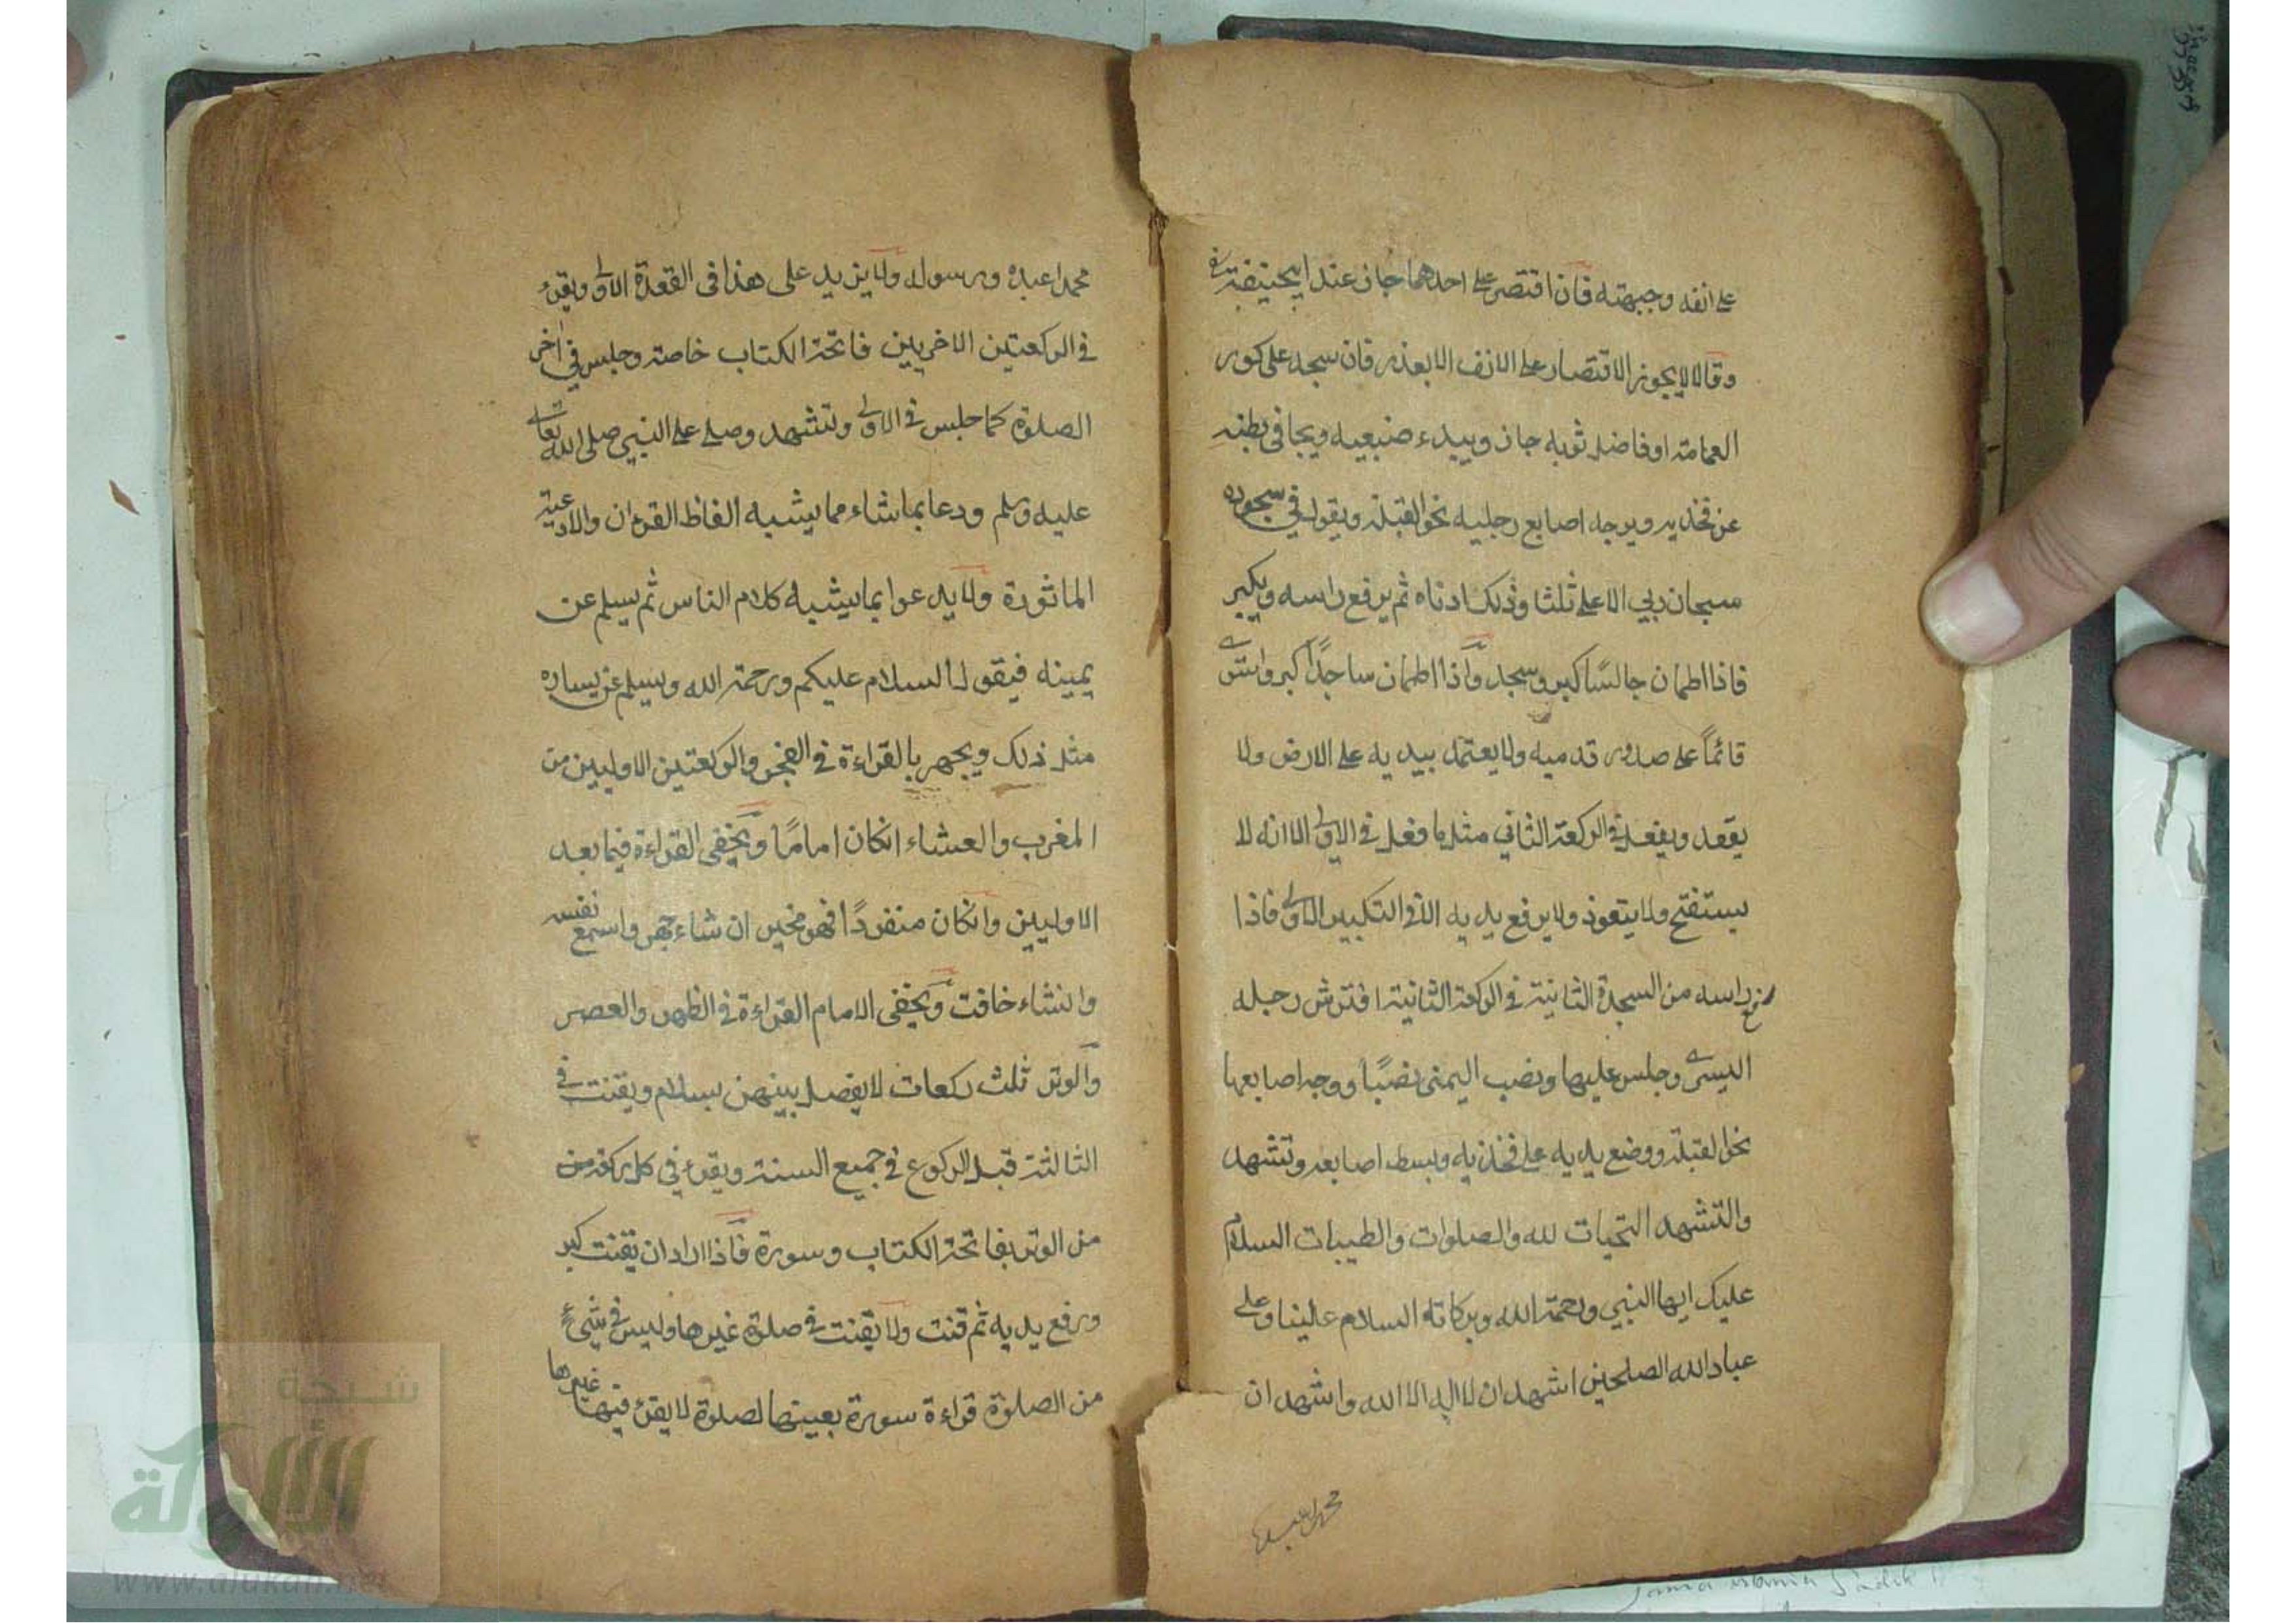 على انفه وجبهته فان اقتصر على احدهما جاز عند ابيحنيفة
وقالا لا يجوز الاقتصار على الانف الا بعذر فان سجد على كور
العمامة او فاضل ثوبه جاز ويبدء ضبعيه ويجافى بطنه
عن فخذيه ويوجه اصابع رجليه نحو القبلة ويقول في سجوده
سبحان ربي الاعلى ثلثا وذلك ادناه ثم يرفع راسه ويكبر
فاذا اطمان جالسًا كبر وسجد واذا اطمان ساجدًا كبر واستوى
قائماً على صدور قدميه ولا يعتمد بيديه على الارض ولا
يقعد ويفعل في الركعة الثاني مثل ما فعل في الاولى الا انه لا
يستفتح ولا يتعوذ ولا يرفع يديه الا في التكبير الاولى فاذا
رفع راسه من السجدة الثانية في الركعة الثانية افترش رجله
اليسرى وجلس عليها ونصب اليمنى نصبًا ووجه اصابعها
نحو القبلة ووضع يديه على فخذيه وبسط اصابعه وتشهد
والتشهد التحيات لله والصلوات والطيبات السلام
عليك ايها النبي ورحمة الله وبركاته السلام علينا وعلى
عباد الله الصلحين اشهد ان لا اله الا الله واشهد ان
محمدا عبده
محمدا عبده ورسوله ولا يزيد على هذا فى القعدة الاولى ويقرء
في الركعتين الاخريين فاتحة الكتاب خاصة وجلس في اخر
الصلوة كما جلس في الاولى وتشهد وصلى على النبي صلى الله تعالى
عليه وسلم ودعا بما شاء مما يشبه الفاظ القرءان والادعية
الماثورة ولا يدعوا بما يشبه كلام الناس ثم يسلم عن
يمينه فيقول السلام عليكم ورحمة الله ويسلم عن يساره
مثل ذلك ويجهر بالقراءة في الفجر والركعتين الاوليين من
المغرب والعشاء انكان امامًا ويخفى القراءة فيما بعد
الاوليين وانكان منفردًا فهو مخير ان شاء جهر واسمع نفسه
وانشاء خافت ويخفى الامام القراءة في الظهر والعصر
والوتر ثلث ركعات لا يفصل بينهن بسلام ويقنت في
الثالثة قبل الركوع في جميع السنة ويقرء في كل ركعة من
من الوتر بفاتحة الكتاب وسورة فاذا اراد ان يقنت كبر
ورفع يديه ثم قنت ولا يقنت في صلوة غيرها وليس في شيء
من الصلوة قراءة سورة بعينها لصلوة لا يقرء فيها غيرها
شبكة
الألوكة
www.alukah.net